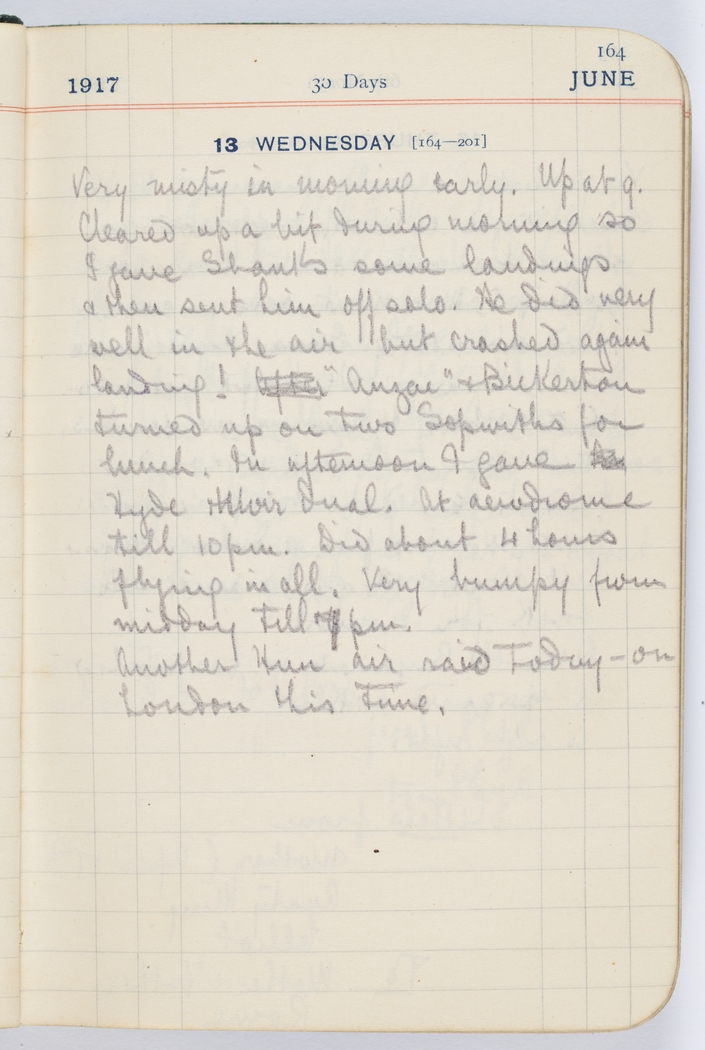 164
1917 30 Days JUNE
13 WEDNESDAY [164—201]
Very misty in morning early. Up at 9.
Cleared up a bit during morning so
I gave Shanks some landings
& then sent him off solo. He did very
well in the air but crashed again
landing! "Anzac" & Bickerton
turned up on two Sopwiths for
lunch. In afternoon I gave
Hyde & Muir dual. At aerodrome
till 10 pm. Did about 4 hours
flying in all. Very bumpy from
midday till 7 pm.
Another Hun air raid today - on
London this time.